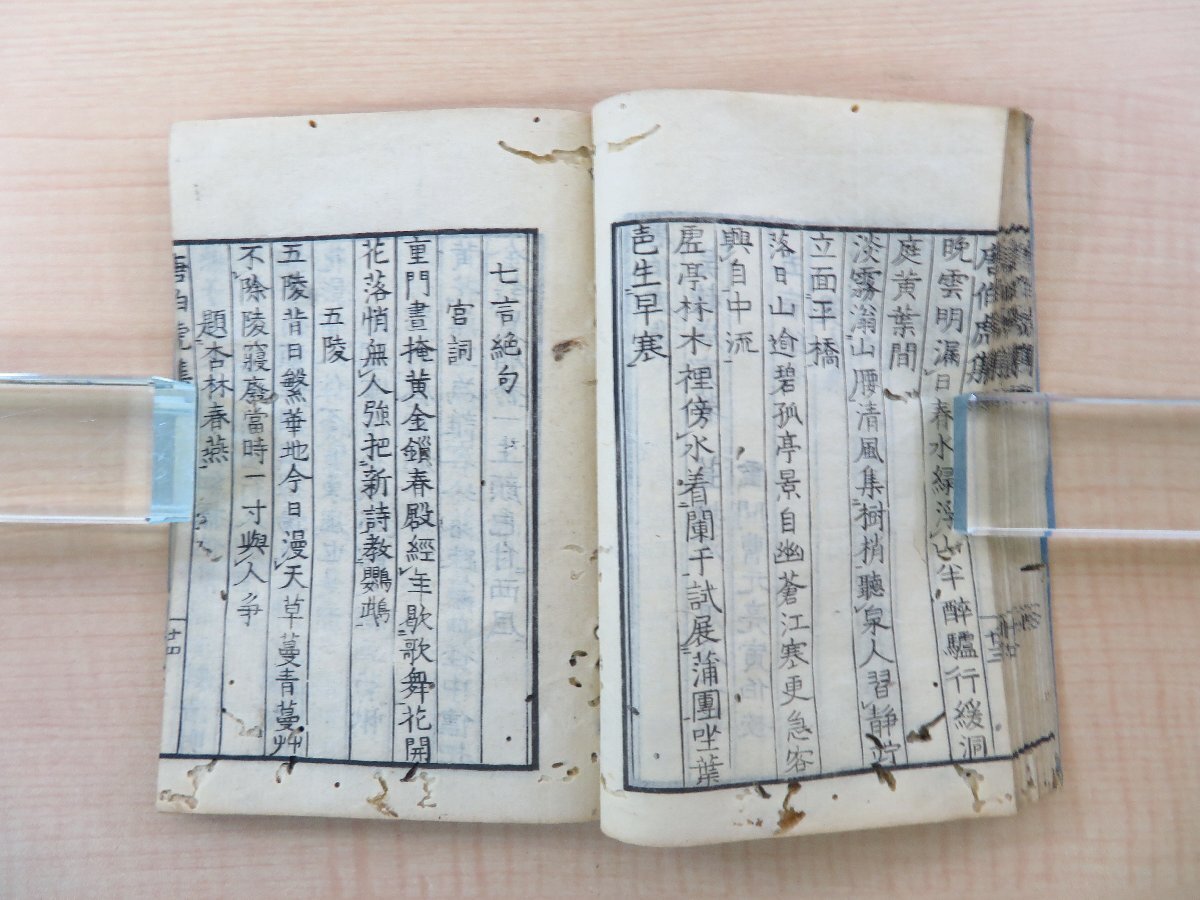 唐伯虎集
晩雲明漏日春水緑浮山半醉驢行緩洞
庭黄葉間
淡霧滃山腰清風集樹梢聽泉人習靜
立面平橋
落日山逾碧孤亭景自幽蒼江寒更急客
興自中流
虚亭林木裡傍水着闌干試展蒲團坐葉
邑生早寒
十三
七言絶句
宮詞
重門晝掩黄金鎖春殿經年歇歌舞花開
花落悄無人強把新詩教鸚鵡
五陵
五陵昔日繁華地今日漫天草蔓青蔓艸
不除陵寢廢當時一寸與人爭
題杏林春燕
唐伯虎集
十四